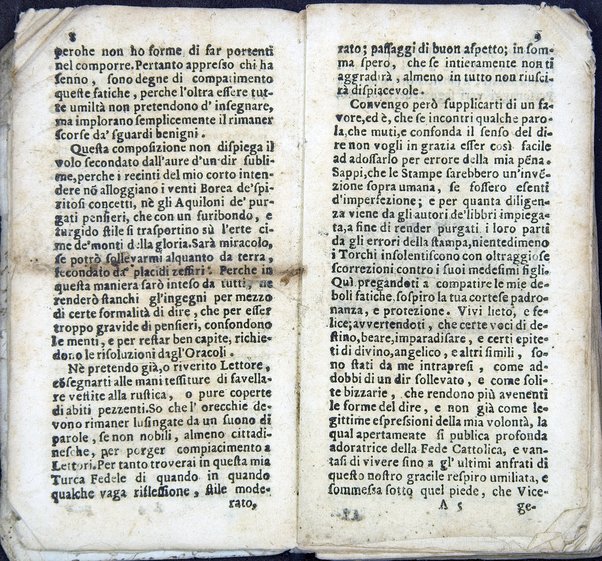 8
perche non ho forme di far portenti
nel comporre. Pertanto appresso chi ha
senno, sono degne di compatimento
queste fatiche, perche l'oltra essere tut-
te umiltà non pretendono d' insegnare,
ma implorano semplicemente il rimaner
scorse da' sguardi benigni.
Questa composizione non dispiega il
volo secondato dall'aure d'un dir subli-
me, perche i recinti del mio corto inten-
dere nō alloggiano i venti Borea de' spi-
ritosi concetti, nè gli Aquiloni de' pur-
gati pensieri, che con un furibondo, e
turgido stile si trasportino sù l'erte ci-
me de' monti della gloria. Sarà miracolo,
se potrò sollevarmi alquanto da terra,
secondato da' placidi zeffiri. Perche in
questa maniera sarò inteso da tutti, ne
renderò stanchi gl'ingegni per mezzo
di certe formalità di dire, che per esser
troppo gravide di pensieri, confondono
le menti, e per restar ben capite, richie-
dono le risoluzioni dagl'Oracoli.
Nè pretendo già, o riverito Lettore,
consegnarti alle mani tessiture di favella-
re vestite alla rustica, o pure coperte
di abiti pezzenti. So che l' orecchie de-
vono rimaner lusingate da un suono di
parole, se non nobili, almeno cittadi-
nesche, per porger compiacimento a
Lettori. Per tanto troverai in questa mia
Turca Fedele di quando in quando
qualche vaga riflessione, stile mode-
rato,
9
rato; passaggi di buon aspetto; in som-
ma spero, che se intieramente non ti
aggradirà, almeno in tutto non riusci-
rà dispiacevole.
Convengo però supplicarti di un fa-
vore, ed è, che se incontri qualche paro-
la, che muti, e confonda il senso del di-
re non vogli in grazia esser così facile
ad adossarlo per errore della mia pēna.
Sappi, che le Stampe sarebbero un'invē-
zione sopra umana, se fossero esenti
d'imperfezione; e per quanta diligen-
za viene da gli autori de' libbri impiega-
ta, a fine di render purgati i loro parti
da gli errori della stampa, nientedimeno
i Torchi insolentiscono con oltraggiose
scorrezioni contro i suoi medesimi figli.
Quì pregandoti a compatire le mie de-
boli fatiche, sospiro la tua cortese padro-
nanza, e protezione. Vivi lieto, e fe-
lice; avvertendoti, che certe voci di de-
stino, beare, imparadisare, e certi epite-
ti di divino, angelico, e altri simili, so-
no stati da me intrapresi, come ad-
dobbi di un dir sollevato, e come soli-
te bizzarie, che rendono più avenenti
le forme del dire, e non già come le-
gittime espressioni della mia volontà, la
qual apertamente si publica profonda
adoratrice della Fede Cattolica, e van-
tasi di vivere sino a gl' ultimi anfrati di
questo nostro gracile respiro umiliata, e
sommessa sotto quel piede, che Vice-
A 5 ge-